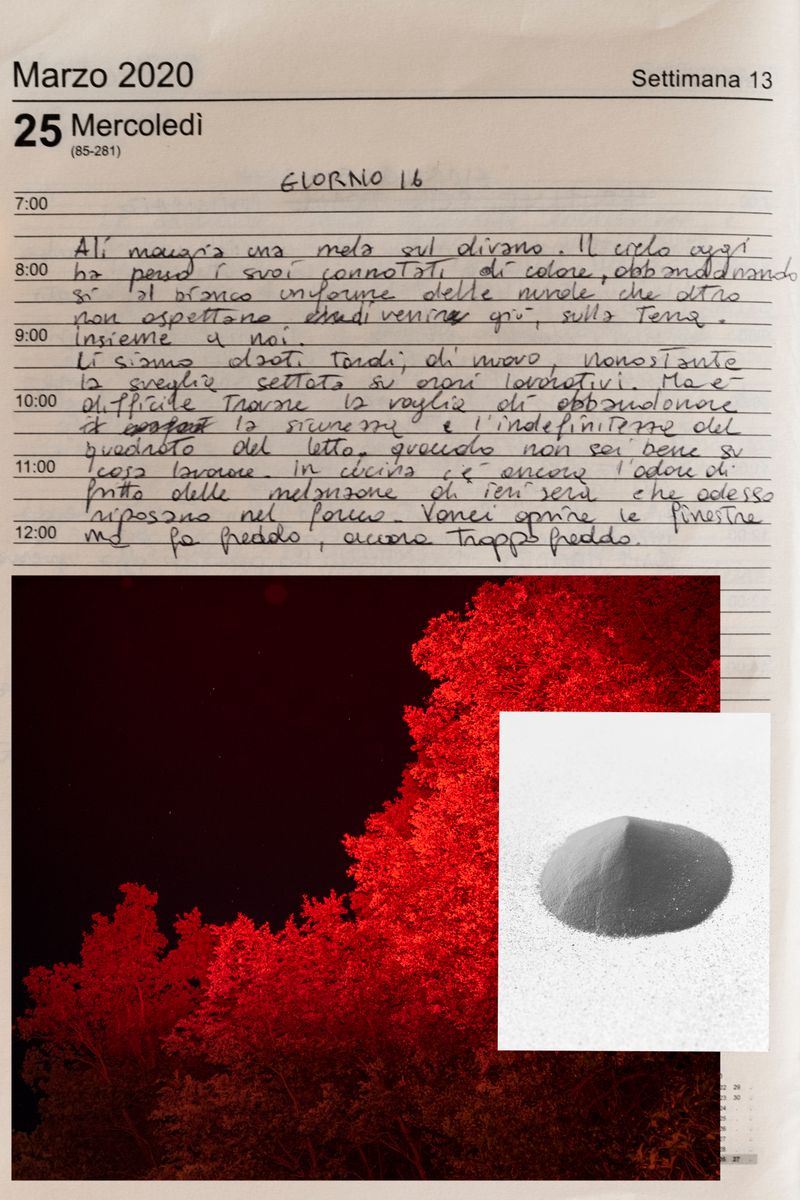 Marzo 2020
Settimana 13
25 Mercoledì
(85-281)
GIORNO 16
7:00
Alì mangia una mela sul divano. Il cielo oggi
8:00
ha perso i suoi connotati di colore, abbandonando
si al bianco uniforme delle nuvole che altro
non aspettano di venire giù, sulla Terra.
9:00
insieme a noi.
Ci siamo alzati tardi, di nuovo, nonostante
la sveglia settata su orari lavorativi. Ma è
10:00
difficile trovare la voglia di abbandonare
la sicurezza e l'indefinitezza del
quadrato del letto, quando non sai bene su
11:00
cosa lavorare. In cucina c'è ancora l'odore di
fritto delle melanzane di ieri sera che adesso
riposano nel forno. Vorrei aprire le finestre
12:00
ma fa freddo, ancora troppo freddo.
22 29
23 30
24
25
26
27
28
26 27